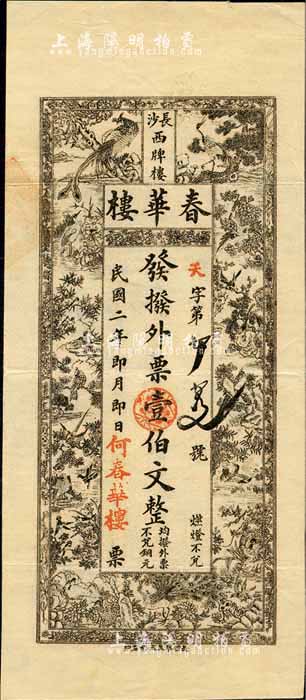 上海陽明拍賣
www.yangmingauction.com
長沙
西牌樓
春華樓
天字第 號 燃燈不兌
發撥外票壹伯文整 均撥外票 不兌銅元
民國二年即月即日何春華樓票
上海陽明拍賣
www.yangmingauction.com